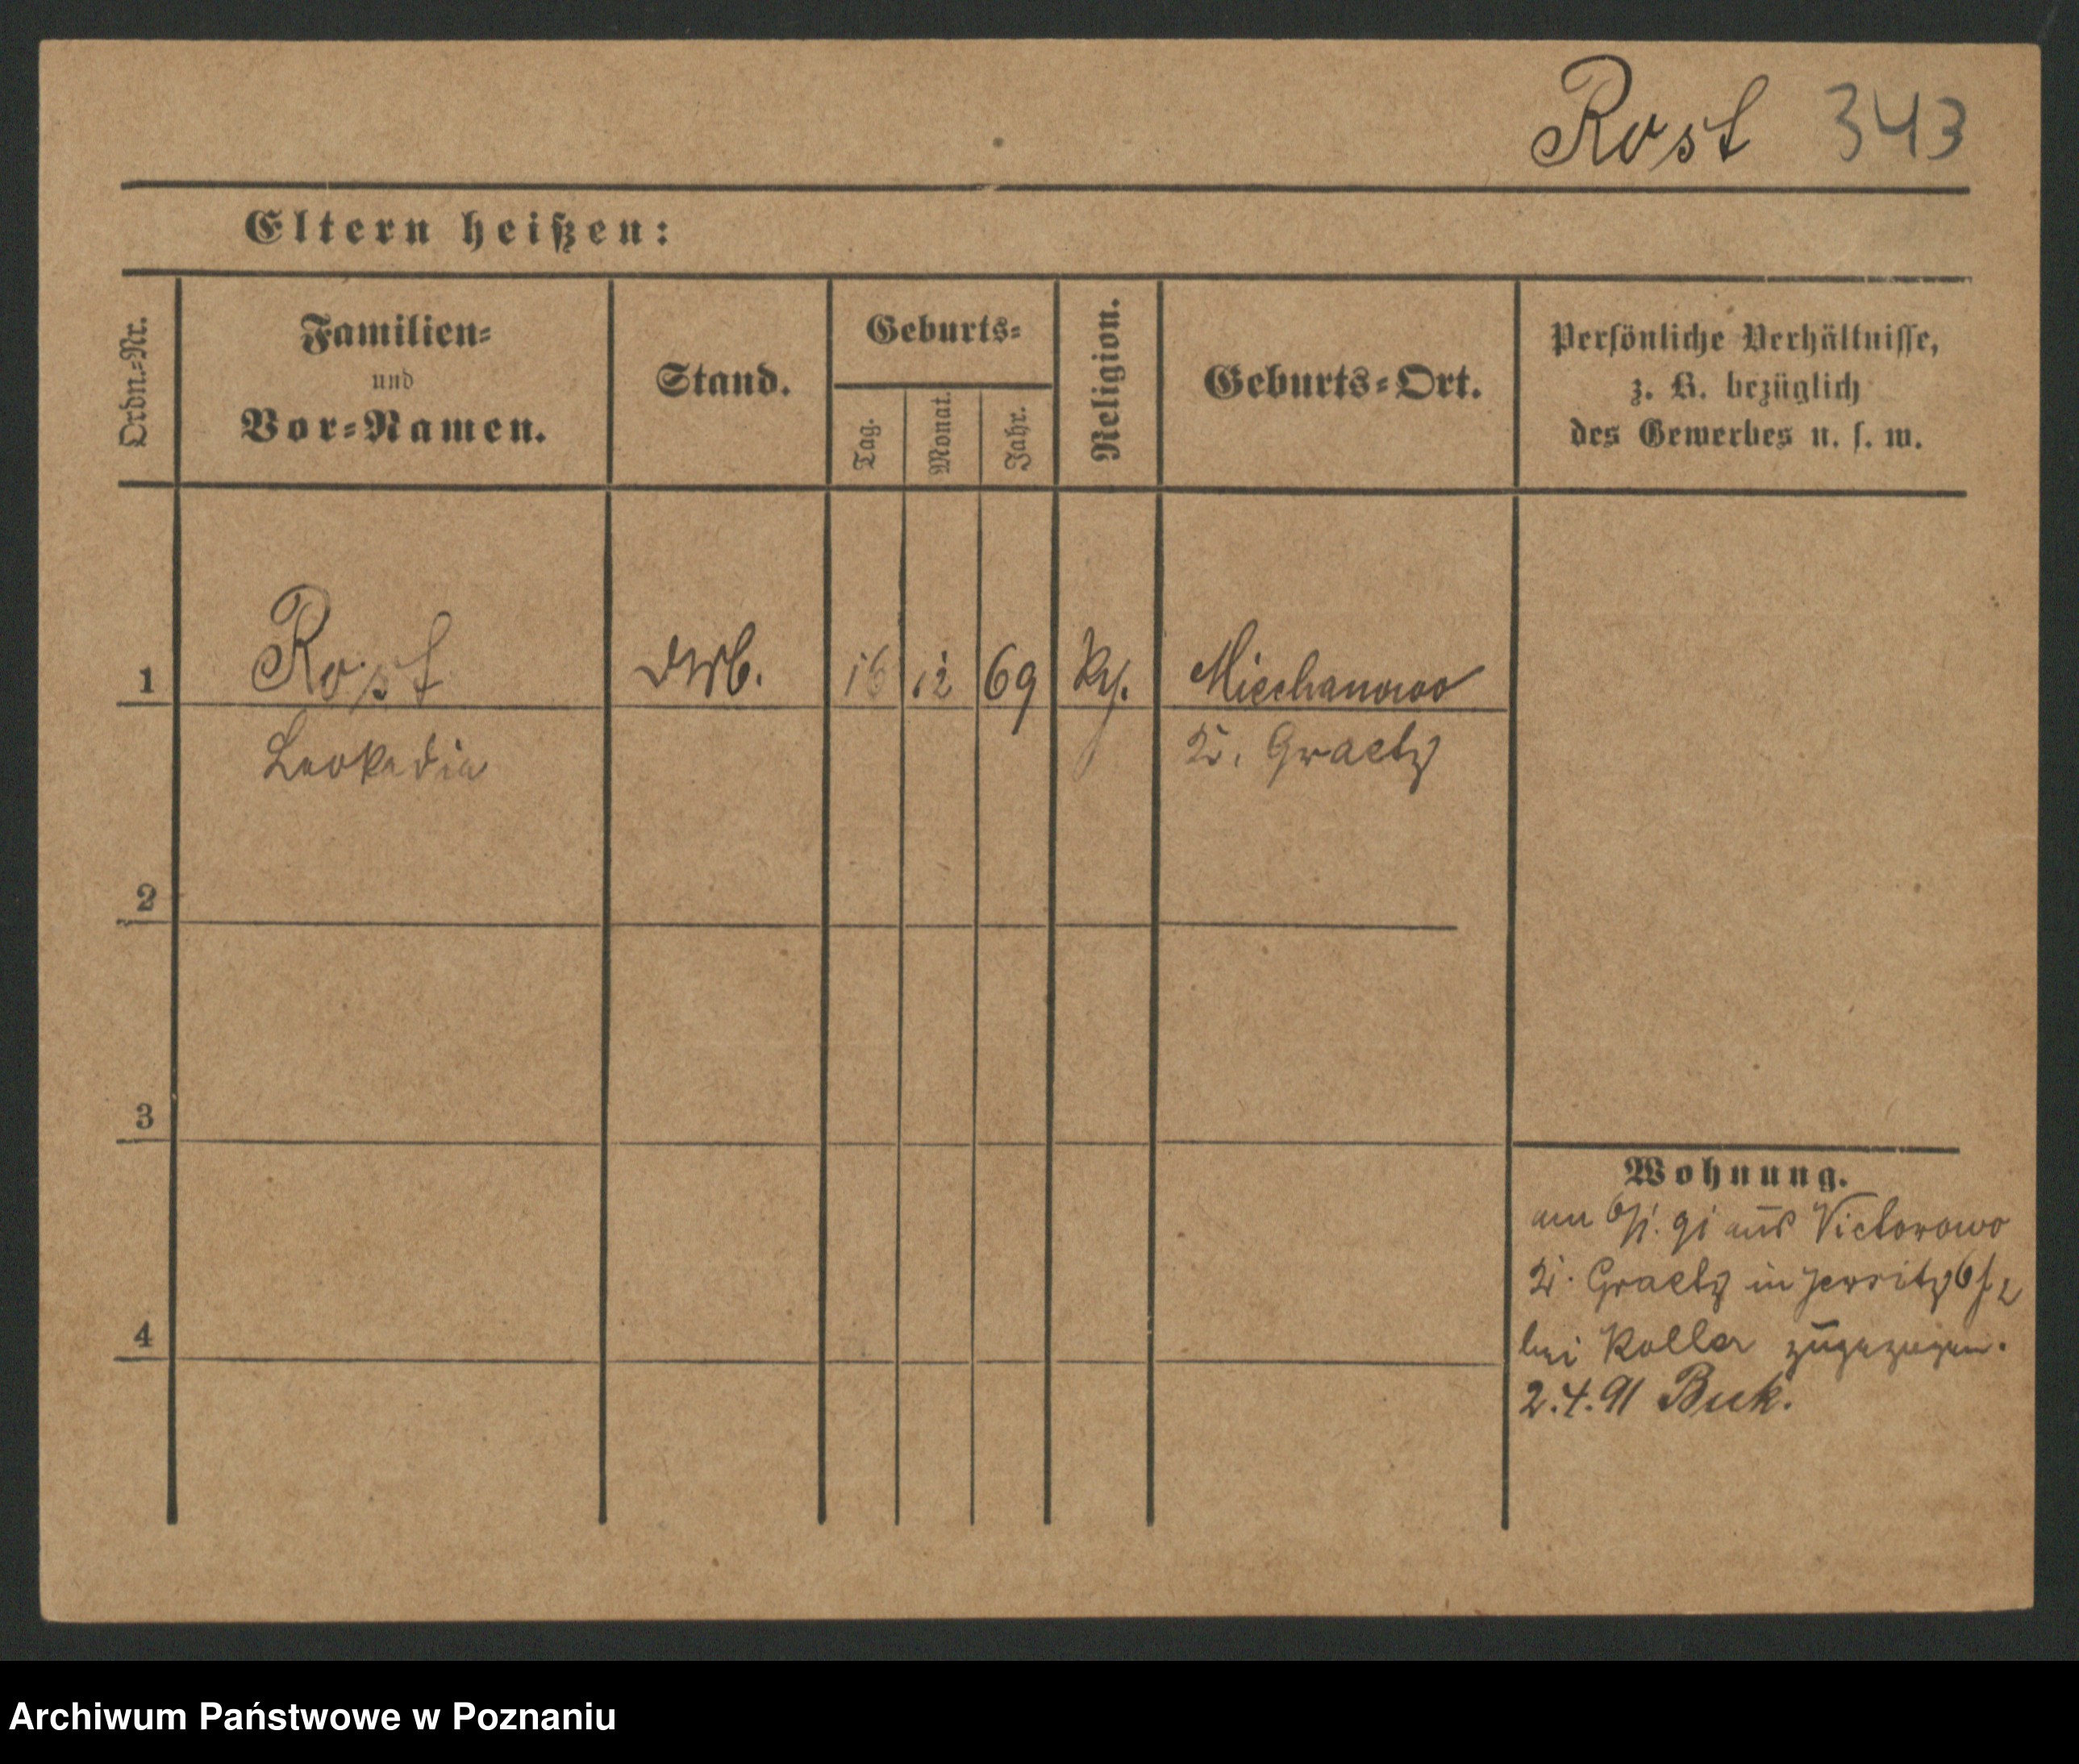 Rost 343
Eltern heißen:
Ordn.-Nr.
Familien-
und
Vor-Namen.
Stand.
Geburts-
Tag.
Monat.
Jahr.
Religion.
Geburts-Ort.
Persönliche Verhältnisse,
z. B. bezüglich
des Gewerbes u. s. w.
1 Rost 16 12 69 Miechanowo
Leokadia K. Graetz
2
3
4
Wohnung.
am 6/1. 91 aus Victorowo
K. Graetz in Jersitz
bei Koller zugezogen.
2.4.91 Buk.
Archiwum Państwowe w Poznaniu